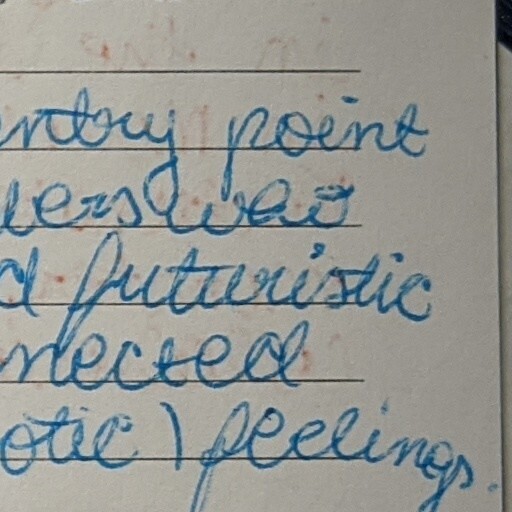 entry point
ders was
d futuristic
nected
otic) feelings.